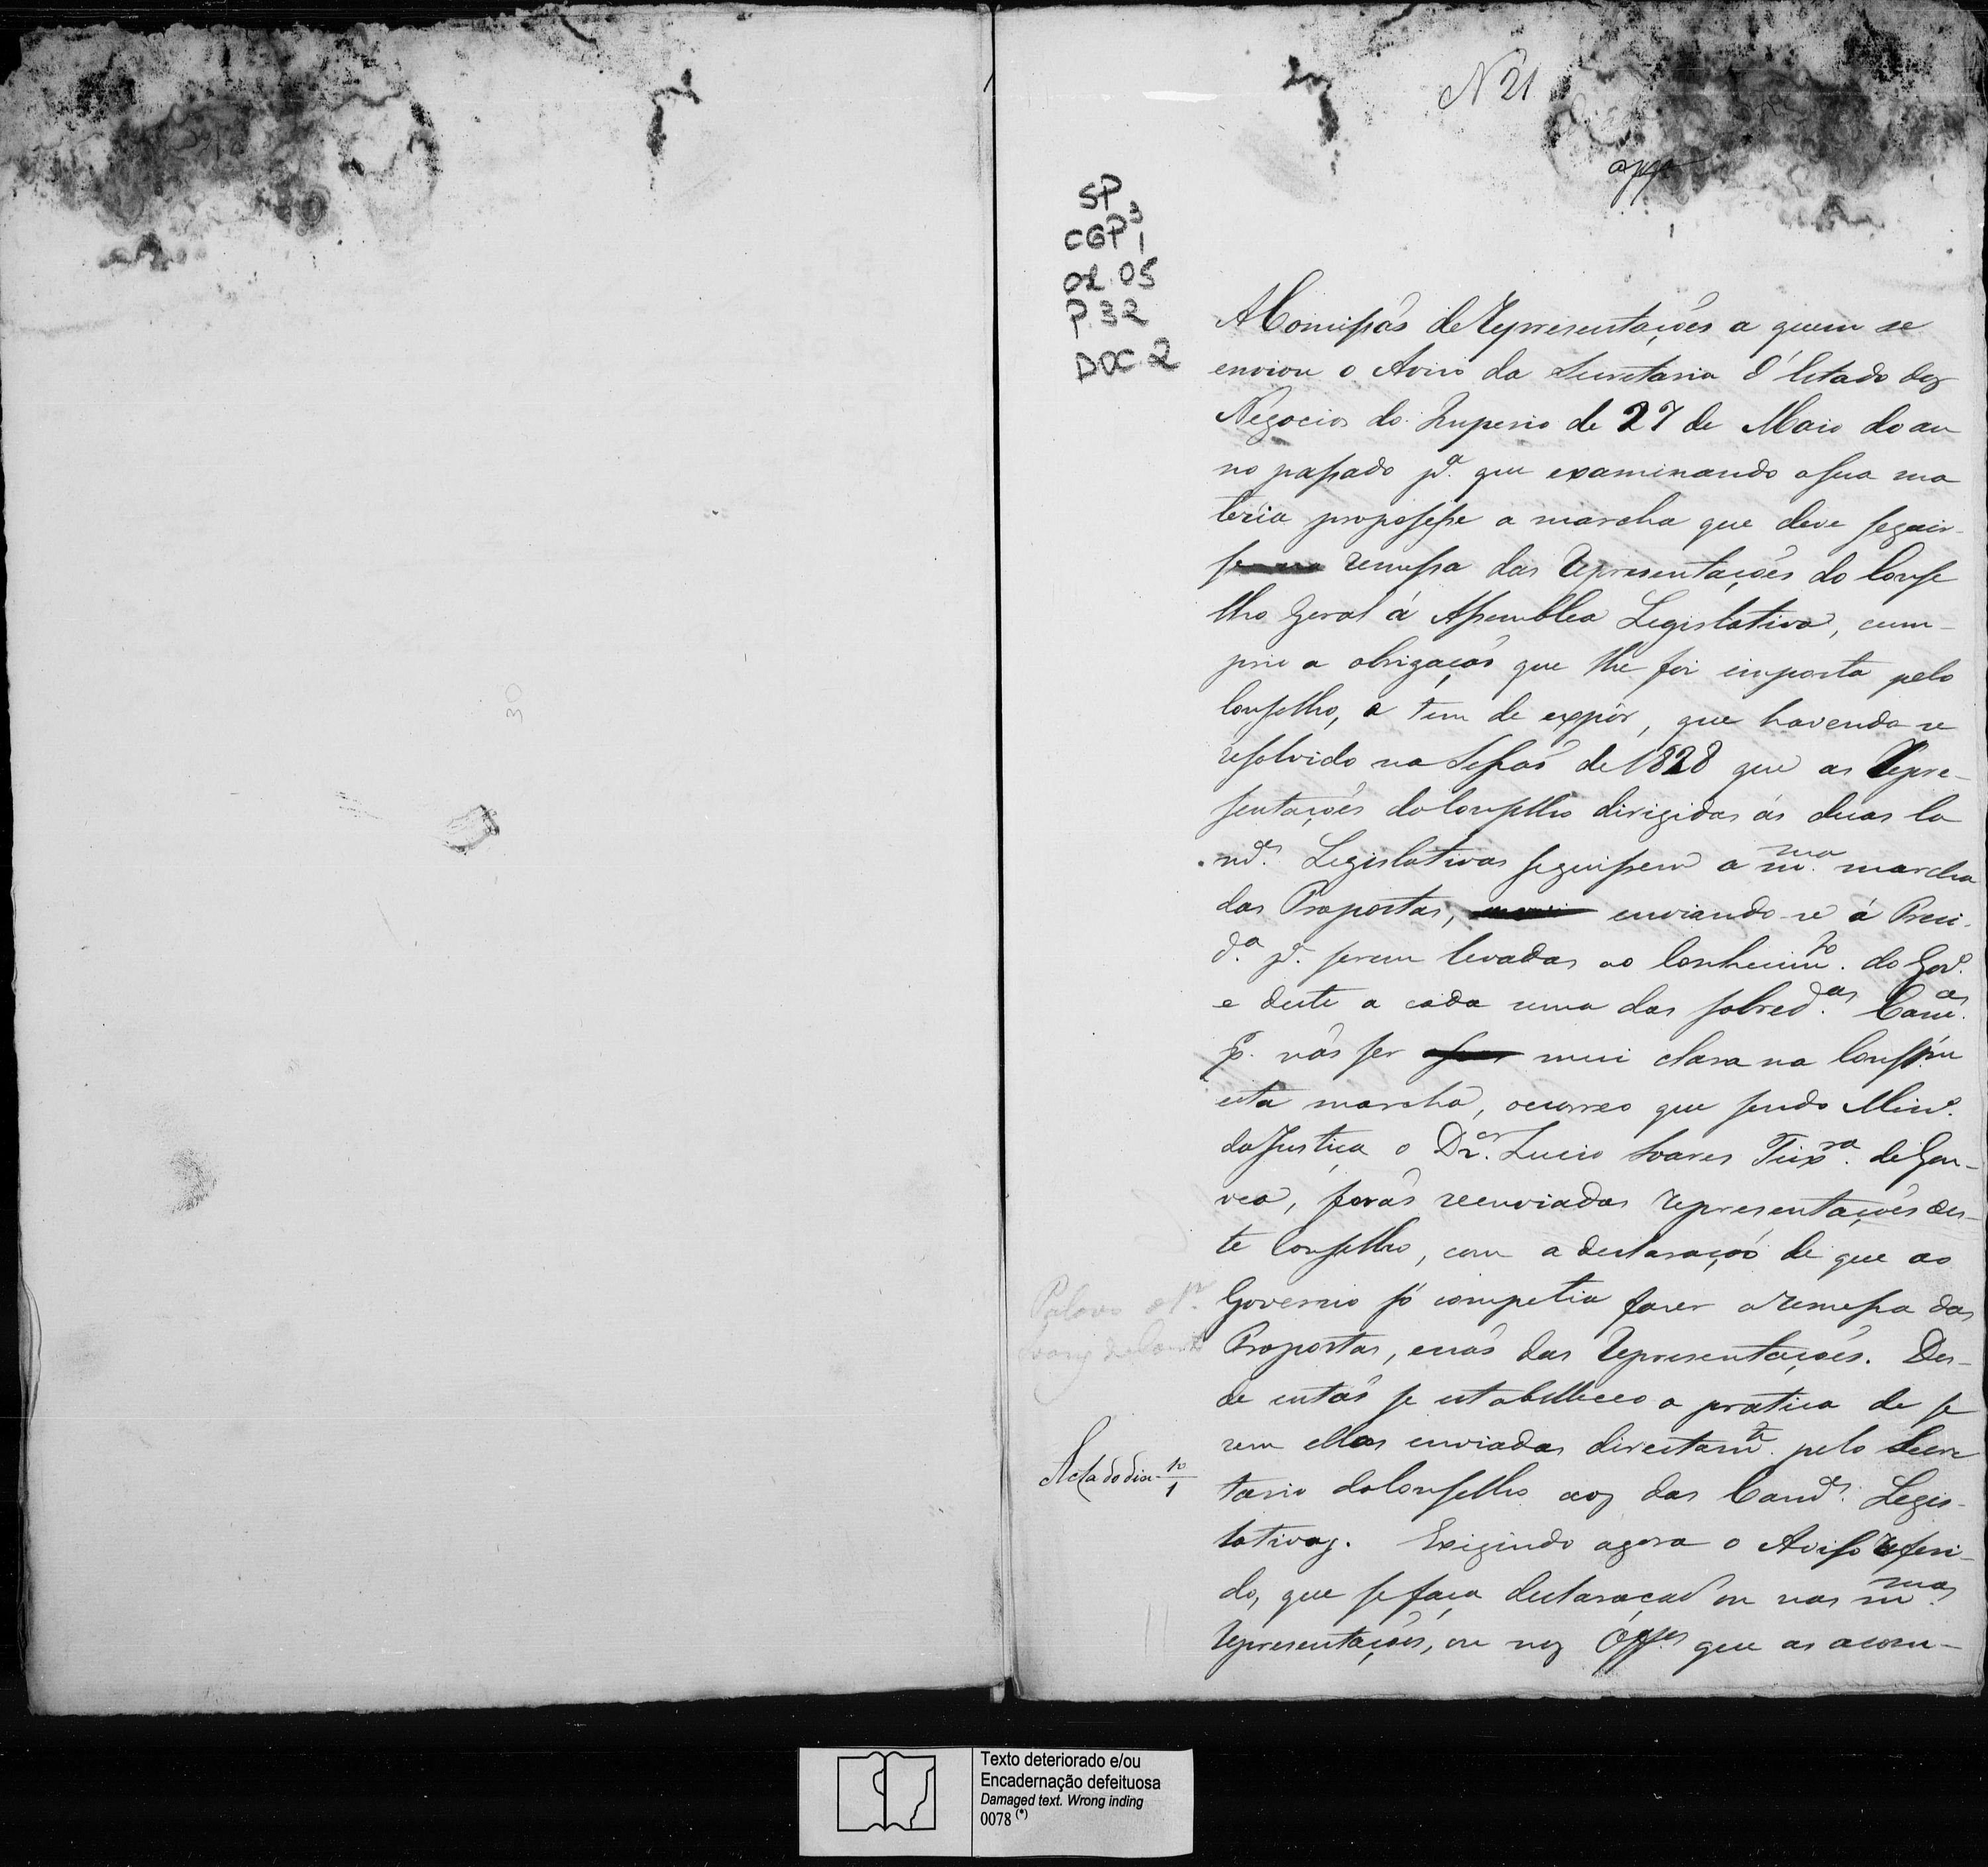 N 21
appr
SP
CGP 3
1
02.05
P.32
DOC 2
A Comissaõ de Representaçoẽs a quem se
enviou o Aviso da Secretaria d'Estado dos
Negocios do Imperio de 27 de Maio do an
no passado pª. que examinando a sua ma
teria propusesse a marcha que deve seguir-
se remessa das Representaçoẽs do Conse
lho Geral á Assemblea Legislativa, cum-
prio a obrigaçaõ que lhe foi imposta pelo
Conselho, e tem de expôr, que havendo-se
resolvido na Sessaõ de 1828 que as Repre-
sentaçoẽs do Conselho dirigidas ás duas Ca
mᵉˢ. Legislativas seguissem a mᵐᵃ. marcha
das Propostas, enviando-se á Presi-
dª. pª. serem levadas ao Conhecimᵗᵒ. do Govº.
e deste a cada uma das sobredᵃˢ. Camᵃˢ.
P. naõ ser mui clara na Constᵐ
esta marcha, ocorreo que sendo Minº.
da Justiça o Dʳ. Lucio Soares Teixʳᵃ. de Gou-
vea, foraõ reenviadas representaçoẽs des-
te Conselho, com a declaraçaõ de que ao
Governo só competia fazer a remessa das
Propostas, e naõ das Representaçoẽs. Des-
de entaõ se estabelleceo a pratica de se
rem ellas enviadas directamᵗᵉ. pelo Secre
tario do Conselho aos das Camᵃˢ. Legis-
lativas. Exigindo agora o Aviso referi-
do, que se faça declaraçaõ ou nas mᵐᵃˢ.
Representaçoẽs, ou nos Offᵒˢ que as acom-
Acta do dia 10/1
30
Texto deteriorado e/ou
Encadernação defeituosa
Damaged text. Wrong inding
0078 (*)